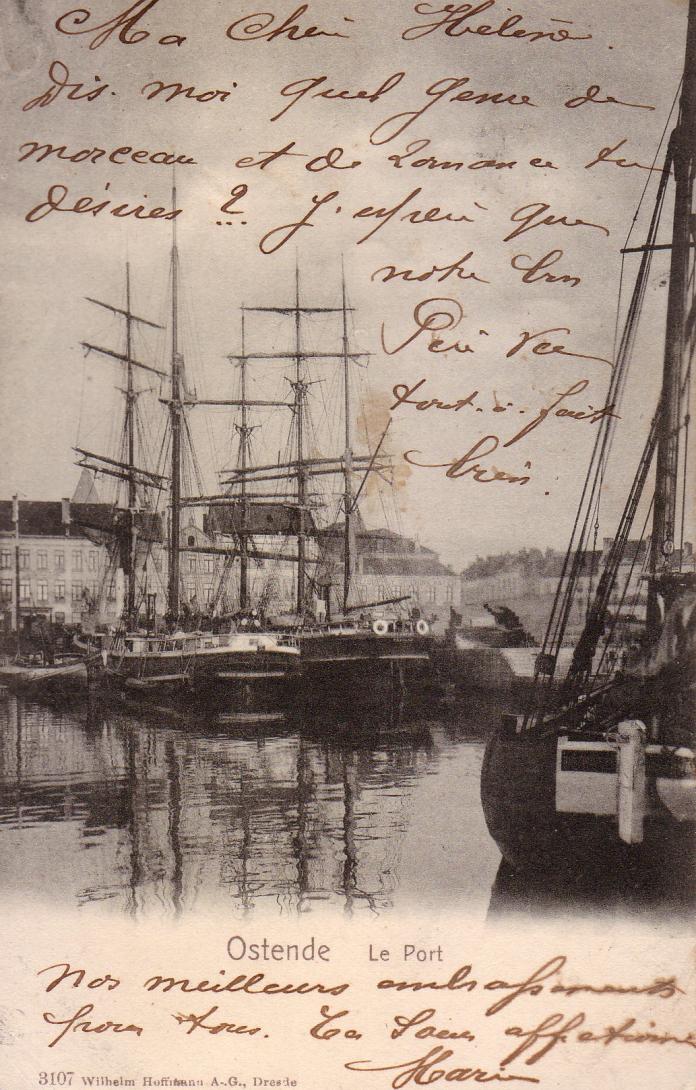 Ma Chère Hélène.
Dis. moi quel genre de
morceau et de Romance tu
désires ? J'espère que
notre bon
Père va
tout-à-fait
bien.
Ostende Le Port
Nos meilleurs embrassements
pour tous. Ta Soeur affectionnée
Marie
3107 Wilhelm Hoffmann A.-G., Dresde